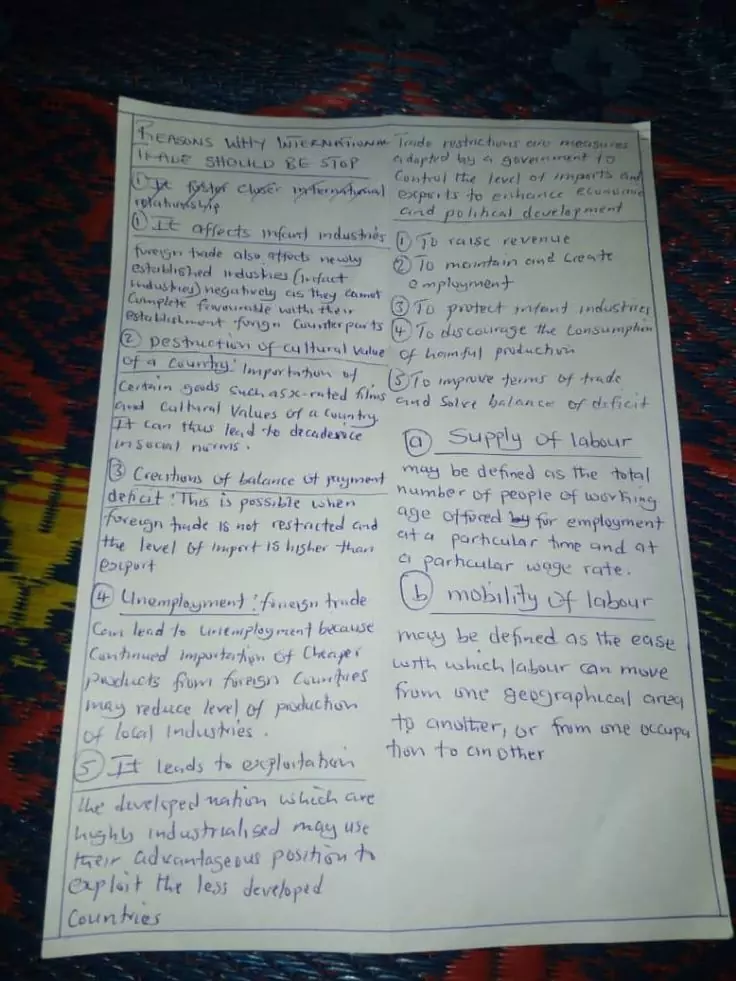 REASONS WHY INTERNATIONAL
TRADE SHOULD BE STOP
① It foster closer international
relationship
① It affects infant industries
foreign trade also affects newly
established industries (infact
industries) negatively as they cannot
complete favourable with their
establishment forign Counterparts
② Destruction of cultural value
of a country: importation of
certain goods such as x-rated films
and cultural values of a country
It can thus lead to decadence
in social norms.
③ Creations of balance of payment
deficit: This is possible when
foreign trade is not restricted and
the level of import is higher than
export
④ Unemployment: foreign trade
Can lead to unemployment because
Continued importation of Cheaper
products from foreign Countries
may reduce level of production
of local Industries.
⑤ It leads to exploitation
the developed nation which are
highly industrialised may use
their advantageous position to
exploit the less developed
Countries
Trade restrictions are measures
adopted by a government to
Control the level of imports and
exports to enhance economic
and political development
① To raise revenue
② To maintain and create
employment
③ To protect infant industries
④ To discourage the consumption
of harmful production
⑤ To improve terms of trade
and solve balance of deficit
ⓐ Supply of labour
may be defined as the total
number of people of working
age offered by for employment
at a particular time and at
a particular wage rate.
ⓑ mobility of labour
may be defined as the ease
with which labour can move
from one geographical area
to another, or from one occupa
tion to another